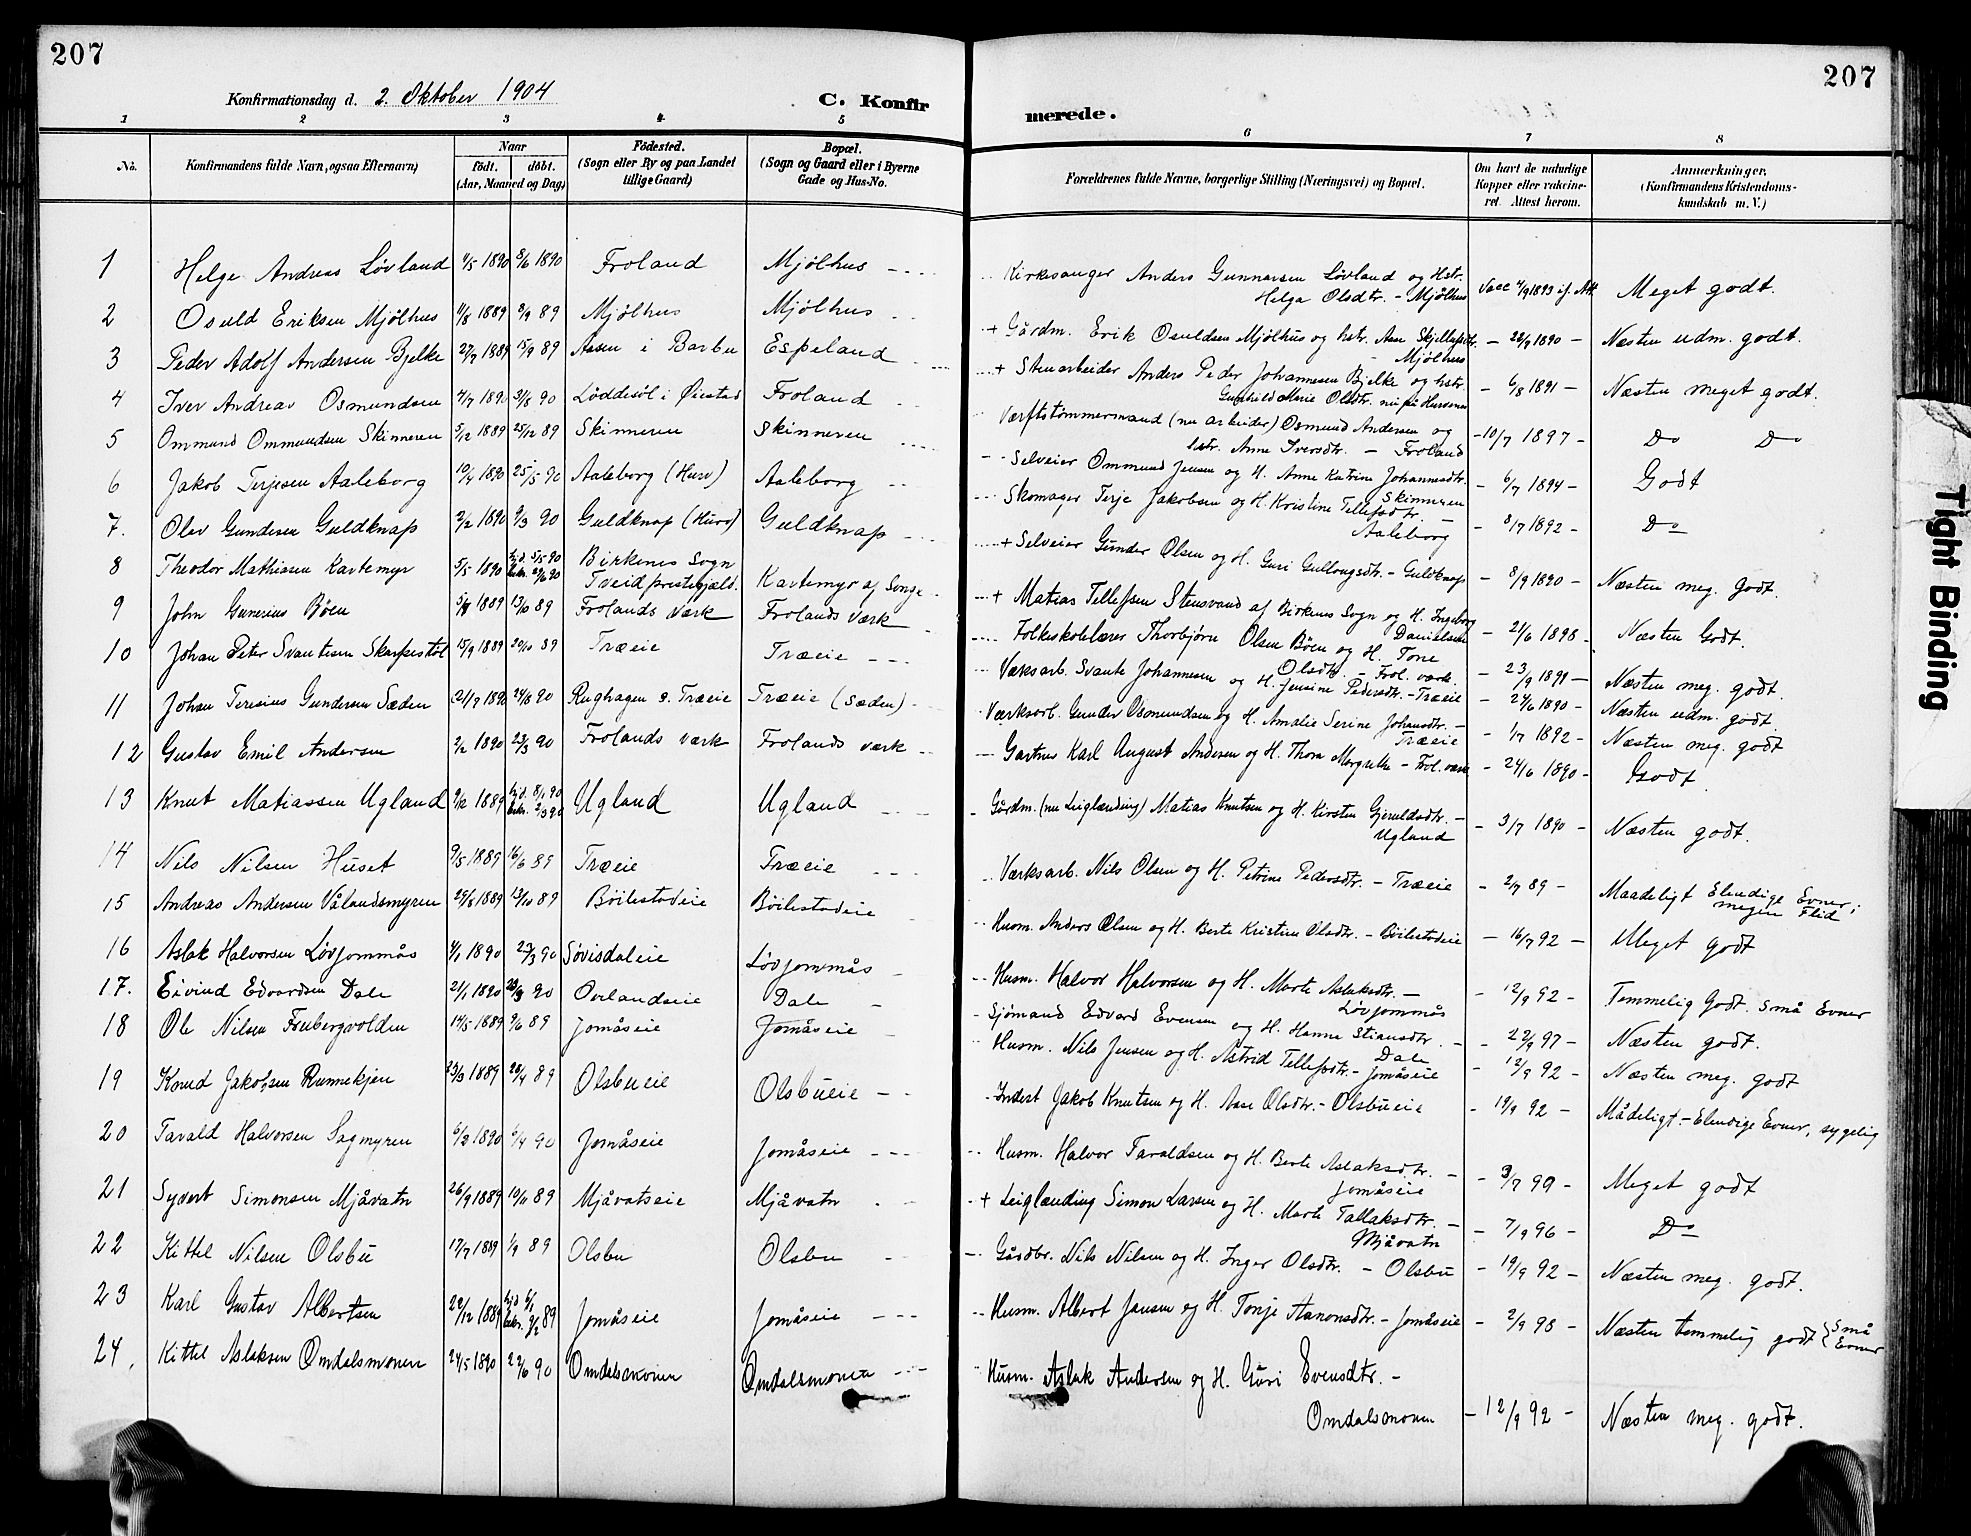 207
207
Konfirmationsdag d. 2. Oktober 1904
C. Konfir
merede.
1 2 3 4 5 6 7 8
No. Konfirmandens fulde Navn, ogsaa Efternavn) Naar födt. döbt. (Aar, Maaned og Dag) Födested. (Sogn eller By og paa Landet tillige Gaard) Bopæl. (Sogn og Gaard eller i Byerne Gade og Hus-No.
Forældrenes fulde Navne, borgerlige Stilling (Næringsvei) og Bopæl. Om havt de naturlige Kopper eller vakcineret. Attest herom. Anmærkninger. (Konfirmandens Kristendomskundskab m. V.)
1 Helge Andreas Løvland 4/5 1890 8/6 1890 Froland Mjølhus
2 Osuld Eriksen Mjølhus 11/8 1889 8/9 89 Mjølhus Mjølhus
3 Peder Adolf Andersen Bjelke 27/7 1889 15/9 89 Aasen i Barbu Espeland
4 Iver Andreas Osmundsen 4/7 1890 3/8 90 Løddesöl i Øiestad Froland
5 Ommund Ommundsen Skinneren 5/12 1889 25/12 89 Skinneren Skinneren
6 Jakob Terjesen Aaleborg 10/4 1890 25/5 90 Aaleborg (Hurv) Aaleborg
7. Olav Gundersen Guldknap 2/2 1890 9/3 90 Guldknap (Hurv) Guldknap
8 Theodor Mathiasen Kartemyr 5/5 1890 hjd. 5/5 90 bekr. 29/6 90 Birkenes Sogn Tveid prestegjæld. Kartemyr af Songe
9 John Gunerius Bøen 5/9 1889 13/10 89 Frolands Værk Frolands Værk
10 Johan Peter Svantesen Skarpestöl 15/9 1889 20/10 89 Træeie Træeie
11 Johan Teresius Gundersen Sæden 21/7 1890 24/8 90 Rughagen s. Træeie Træeie (Sæden)
12 Gustav Emil Andersen 2/2 1890 23/3 90 Frolands Værk Frolands værk
13 Knut Matiassen Ugland 9/12 1889 hjd. 8/1 90 bekr. 2/3 90 Ugland Ugland
14 Nils Nilsen Huset 9/5 1889 16/6 89 Træeie Træeie
15 Andreas Andersen Vålandsmyren 29/8 1889 13/10 89 Böilestadeie Böilestadeie
16 Aslak Halvorsen Løvjommås 4/1 1890 23/3 90 Søvisdaleie Løvjommås
17. Eivind Edvardsen Dale 21/1 1890 23/3 90 Ovelandseie Dale
18 Ole Nilsen Frebergvolden 14/5 1889 9/6 89 Jomåseie Jomåseie
19 Knud Jakobsen Rønnekjen 23/3 1889 28/4 89 Olsbueie Olsbueie
20 Tarald Halvorsen Sagmyren 6/2 1890 6/4 90 Jomåseie Jomåseie
21 Syvert Simonsen Mjåvatn 26/9 1889 10/11 89 Mjåvatseie Mjåvatn
22 Kittel Nilsen Olsbu 17/7 1889 1/9 89 Olsbu Olsbu
23 Karl Gustav Albertsen 22/12 1889 Jomåseie Jomåseie
24. Kittel Aslaksen Omdalsmonen 24/5 1890 22/6 90 Omdalsmonen Omdalsmonen
Kirkesanger Anders Gunnarsen Løvland og Hstr. Vacc 4/9 1893 if. Att. Meget godt.
Helga Olsdtr. - Mjølhus
+ Gårdm. Erik Osuldsen Mjølhus og hstr. Aase Skjellefsdtr. - 22/9 1890 - Næsten udm. godt.
- Mjølhus
+ Stenarbeider Anders Peder Johannesen Bjelke og hstr. - 6/8 1891 - Næsten meget godt.
Gunhild Marie Olsdtr.
Værftstømmermand (nu arbeider) Osmund Andersen og - 10/7 1897 - Do Do
hstr. Anne Iversdtr. - Froland
Selveier Ommund Jensen og H. Anne Katrine Johannesdtr. - 6/7 1894 - Godt
Skinneren
Skomager Terje Jakobsen og H. Kristine Tellefsdtr. - - 8/7 1892 - Do
Aaleborg
+ Selveier Gunder Olsen og H. Guri Gullougsdtr. - Guldknap - 8/9 1890 - Næsten meg. godt.
+ Matias Tellefsen Stensvand af Birkenes Sogn og H. Ingeborg Danielsen - 21/6 1898 - Næsten Godt.
Folkeskolelærer Thorbjörn Olsen Bøen og H. Tone
Olsdtr. - Frol. værk. - 23/9 1890 - Næsten meg. godt.
Værksarb. Svante Johannesen og H. Jensine Pedersdtr. - Træeie - 24/6 1890 - Næsten udm. godt
Værksarb. Gunder Osmundsen og H. Amalie Serine Johansdtr. - - 1/7 1892 - Næsten meg. godt
Træeie
Gartner Karl August Andersen og H. Thora Margrethe - Frol. værk - 24/6 1890 - Godt
Gårdm. (nu Leiglænding) Matias Knutsen og H. Kirsten Gjeruldsdtr. - - 3/7 1890 - Næsten godt.
Ugland
Værksarb. Nils Olsen og H. Petrine Pedersdtr. - Træeie - 2/7 89 - Maadeligt Elendige Evner; megen Flid
Husm. Anders Olsen og H. Berte Kristine Olsdtr. - Böilestadeie - 16/7 92 - Meget godt
Husm. Halvor Halvorsen og H. Marte Aslaksdtr. - - 12/9 92 - Temmelig Godt. små Evner
Løvjommås
Sjømand Edvard Evensen og H. Hanne Stiansdtr. - - 22/9 97 - Næsten godt.
Dale
Husm. Nils Jensen og H. Astrid Tellefsdtr. - Jomåseie - 12/9 92 - Næsten meg. godt
Inderst Jakob Knutsen og H. Aase Olsdtr. - Olsbueie - 19/9 92 - Mådeligt. - Elendige Evner, sygelig
Husm. Halvor Taraldsen og H. Berte Aslaksdtr. - - 3/7 99 - Meget godt
Jomåseie
+ Leiglænding Simon Larsen og H. Marte Tallaksdtr. - - 7/9 96 - Do
Mjåvatn
Gårdbr. Nils Nilsen og H. Inger Olsdtr. - Olsbu - 19/9 92 - Næsten meg. godt.
Husm. Albert Jensen og H. Tonje Aanonsdtr. - Jomåseie - 2/9 98 - Næsten temmelig godt { Små Evner
Husm. Aslak Andersen og H. Guri Evensdtr. -
Omdalsmonen - 12/9 92 - Næsten meg. godt.
Tight Binding